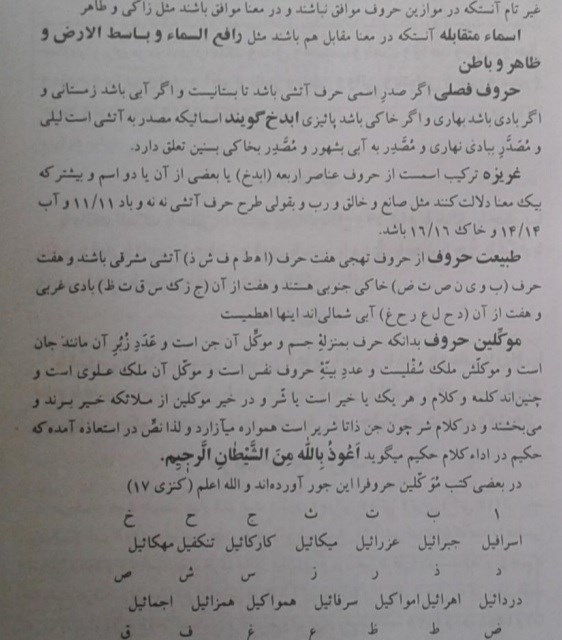 غیر تام آنستکه در موازین حروف موافق نباشند و در معنا موافق باشند مثل زاکی و طاهر
اسماء متقابله آنستکه در معنا مقابل هم باشند مثل رافع السماء و باسط الارض و
ظاهر و باطن
حروف فصلی اگر صدر اسمی حرف آتشی باشد تابستانیست و اگر آبی باشد زمستانی و
اگر بادی باشد بهاری و اگر خاکی باشد پائیزی ابدخ گویند اسمائیکه مصدر به آتشی است لیلی
و مُصَدَّر ببادی نهاری و مُصَّدِر به آبی بشهور و مُصَّدِر بخاکی بسنین تعلق دارد.
غریزه ترکیب اسمست از حروف عناصر اربعه (ابدخ) یا بعضی از آن یا دو اسم و بیشتر که
بیک معنا دلالت کنند مثل صانع و خالق و رب و بقولی طرح حرف آتشی نه نه و باد ۱۱/۱۱ و آب
۱۴/۱۴ و خاک ۱۶/۱۶ باشد.
طبیعت حروف از حروف تهجی هفت حرف (ا ه ط م ف ش ذ) آتشی مشرقی باشند و هفت
حرف (ب و ی ن ص ت ض) خاکی جنوبی هستند و هفت از آن (ج ز ک س ق ث ظ) بادی غربی
و هفت از آن (د ح ل ع ر خ غ) آبی شمالی‌اند اینها اهطمیست
موکّلین حروف بدانکه حرف بمنزلهٔ جسم و موکّل آن جن است و عَدَدِ زُبُرِ آن مانند جان
است و موکلّش ملک سُفْلیست و عدد بیّنهٔ حروف نفس است و موکّل آن ملک علوی است و
چنین‌اند کلمه و کلام و هر یک یا خیر است یا شّر و در خیر موکلین از ملائکه خیر برند و
می‌بخشند و در کلام شر چون جن ذاتا شریر است همواره میآزارد و لذا نصّ در استعاذه آمده که
حکیم در اداء کلام حکیم میگوید اَعُوذُ بِاللهِ مِنَ الشَّیْطانِ الَّرجیمِ.
در بعضی کتب مُوَکّلین حروفرا این جور آورده‌اند و الله اعلم (کنزی ۱۷)
ا ب ت ث ج ح خ
اسرافیل جبرائیل عزرائیل میکائیل کارکائیل تنکفیل مهکائیل
د ذ ر ز س ش ص
دردائیل اهرائیل امواکیل سرفائیل همواکیل همزائیل اجمائیل
ض ط ظ ع غ ف ق